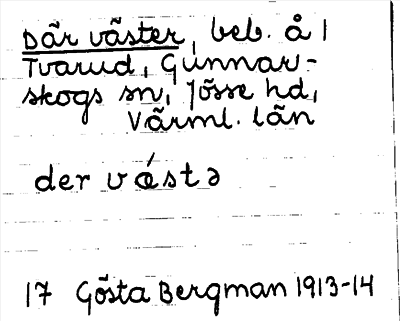 Där väster, beb. å 1
Tvarud, Gunnar-
skogs sn, Jösse hd,
Värml. län
der vǽstə
17 Gösta Bergman 1913-14